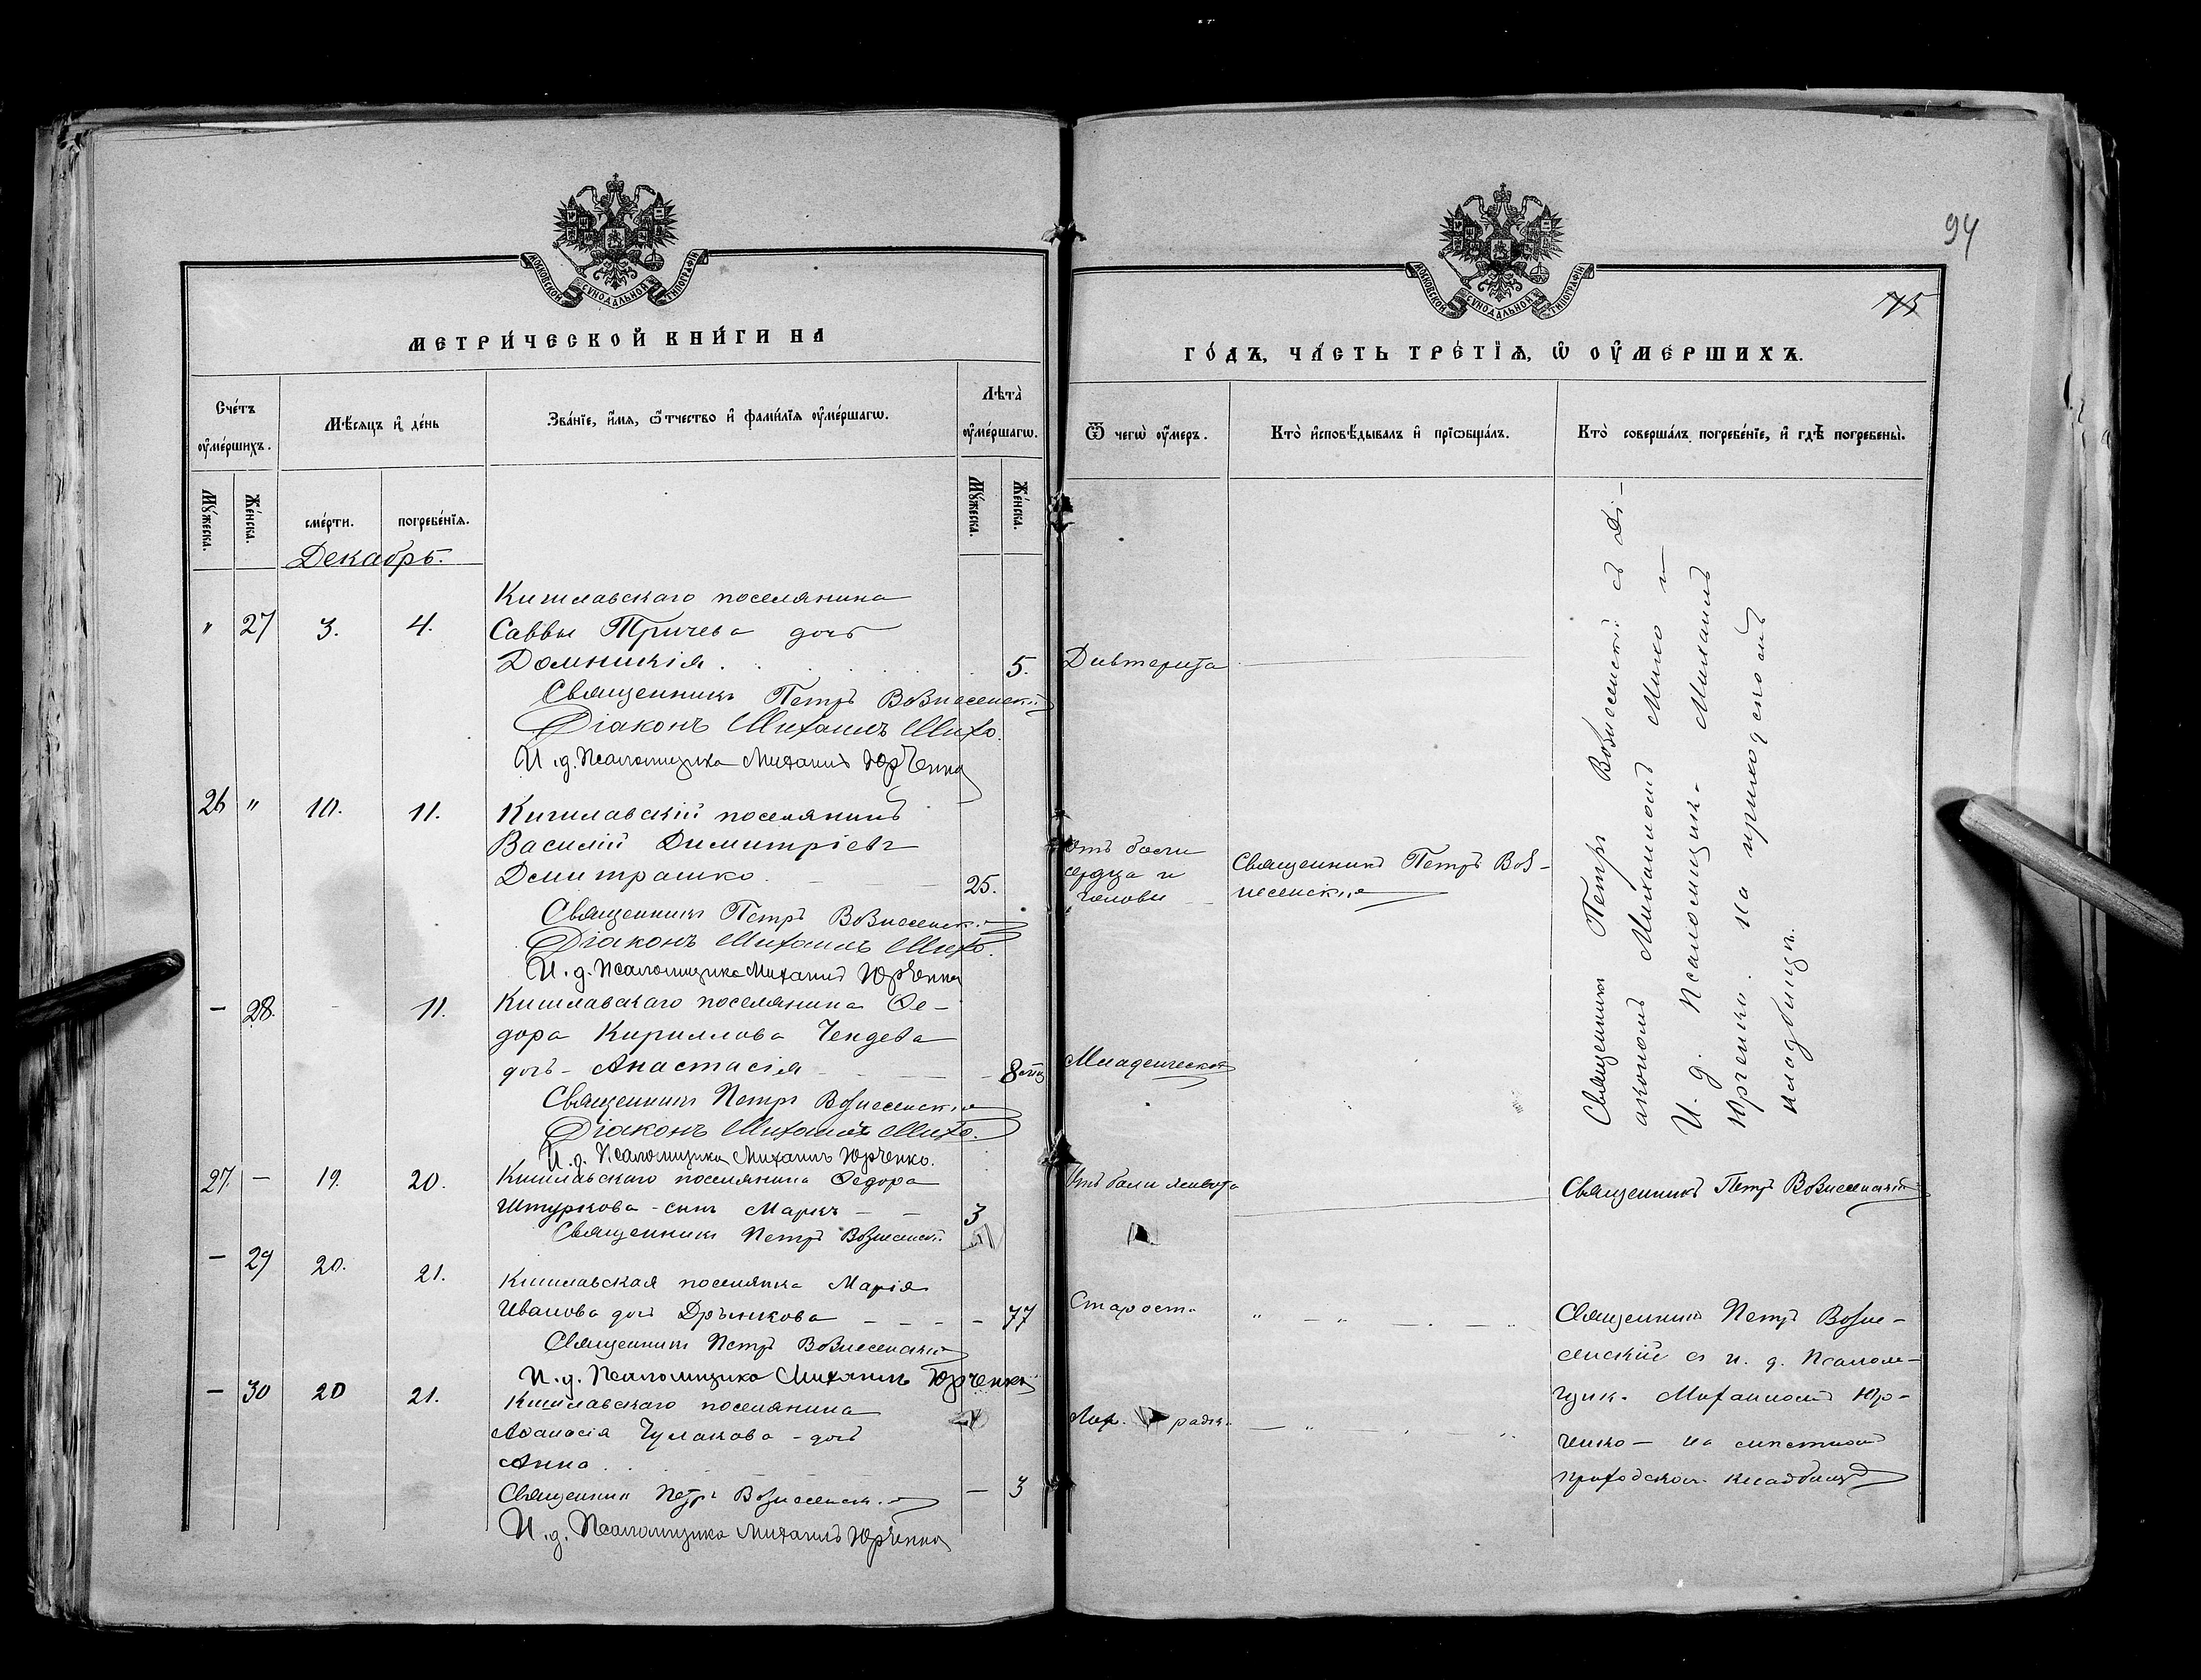 МОСКОВСКОЙ СУНОДАЛЬНОЙ ТИПОГРАФІИ
МЕТРИ́ЧЕСКОЙ КНИ́ГИ НА
Сче́тъ оу҆ме́ршихъ.
Мѣ́сяцъ и҆ де́нь
Зва́нїе, и҆́мя, ѿтчество и҆ фами́лїя оу҆ме́ршагѡ.
Лѣта̀ оу҆ме́ршагѡ.
Му́жеска.
Же́нска.
сме́рти.
погребе́нїя.
Му́жеска.
Же́нска.
Декабрь.
Кишлавскаго поселянина
" 27 3. 4. Саввы Тричева дочь
Домникія . . . 5.
Священникъ Петръ Вознесенскій
Діаконъ Михаилъ Михо.
И. д. Псаломщика Михаилъ Юрченко
26 " 10. 11. Кишлавскій поселянинъ
Василій Димитріевъ
Демитрашко. 25.
Священникъ Петръ Вознесенскій
Діаконъ Михаилъ Михо.
И. д. Псаломщика Михаилъ Юрченко
— 28. - 11. Кишлавскаго поселянина Ѳе-
дора Кириллова Чендева
дочь - Анастасія 8
Священникъ Петръ Вознесенскій
Діаконъ Михаилъ Михо.
И. д. Псаломщика Михаилъ Юрченко.
27. — 19. 20. Кишлавскаго поселянина Ѳедора
Штуркова - сынъ Маркъ — — 3
Священникъ Петръ Вознесенскій
— 29 20. 21. Кишлавская поселянка Марія
Иванова дочь Дрънкова — — — 77
Священникъ Петръ Вознесенскій
И. д. Псаломщика Михаилъ Юрченко
— 30 20 21. Кишлавскаго поселянина
Аѳанасія Чумакова - дочь
Анна . . .
Священникъ Петръ Вознесенскій — 3
И. д. Псаломщика Михаилъ Юрченко
94
75
МОСКОВСКОЙ СУНОДАЛЬНОЙ ТИПОГРАФІИ
ГО́ДЪ, ЧА́СТЬ ТРЕ́ТЇЯ, Ѡ҆ ОУ҆МЕ́РШИХЪ.
Ѿ чегѡ̀ оу҆́меръ.
Кто̀ и҆сповѣ́дывалъ и҆ прїѡбща́лъ.
Кто̀ соверша́лъ погребе́нїе, и҆ гдѣ̀ погребены̀.
Дивтерита
Отъ боли
сердца и
головы
Священникъ Петръ Воз-
несенскій
Младенческой
Священникъ Петръ Вознесенскій съ Ді-
акономъ Михаиломъ Михо и
И. д. Псаломщика Михаилъ
Юрченко. На приходскомъ
кладбищѣ.
Отъ боли живота
Священникъ Петръ Вознесенскій
Старости
Священникъ Петръ Возне-
сенскій съ и. д. Псалом-
щика Михаиломъ Юр-
ченко — на
приходскомъ кладбищѣ